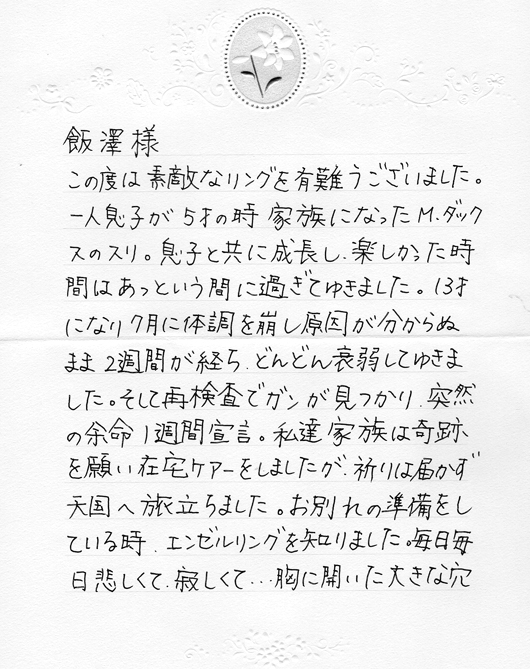 飯澤様
この度は素敵なリングを有難うございました。
一人息子が5才の時 家族になったM.ダック
スのスリ。息子と共に成長し、楽しかった時
間はあっという間に過ぎてゆきました。13才
になり7月に体調を崩し原因が分からぬ
まま2週間が経ち、どんどん衰弱してゆきま
した。そして再検査でガンが見つかり、突然
の余命1週間宣言。私達家族は奇跡
を願い在宅ケアーをしましたが、祈りは届かず
天国へ旅立ちました。お別れの準備をし
ている時、エンゼルリングを知りました。毎日毎
日悲しくて、寂しくて…胸に開いた大きな穴